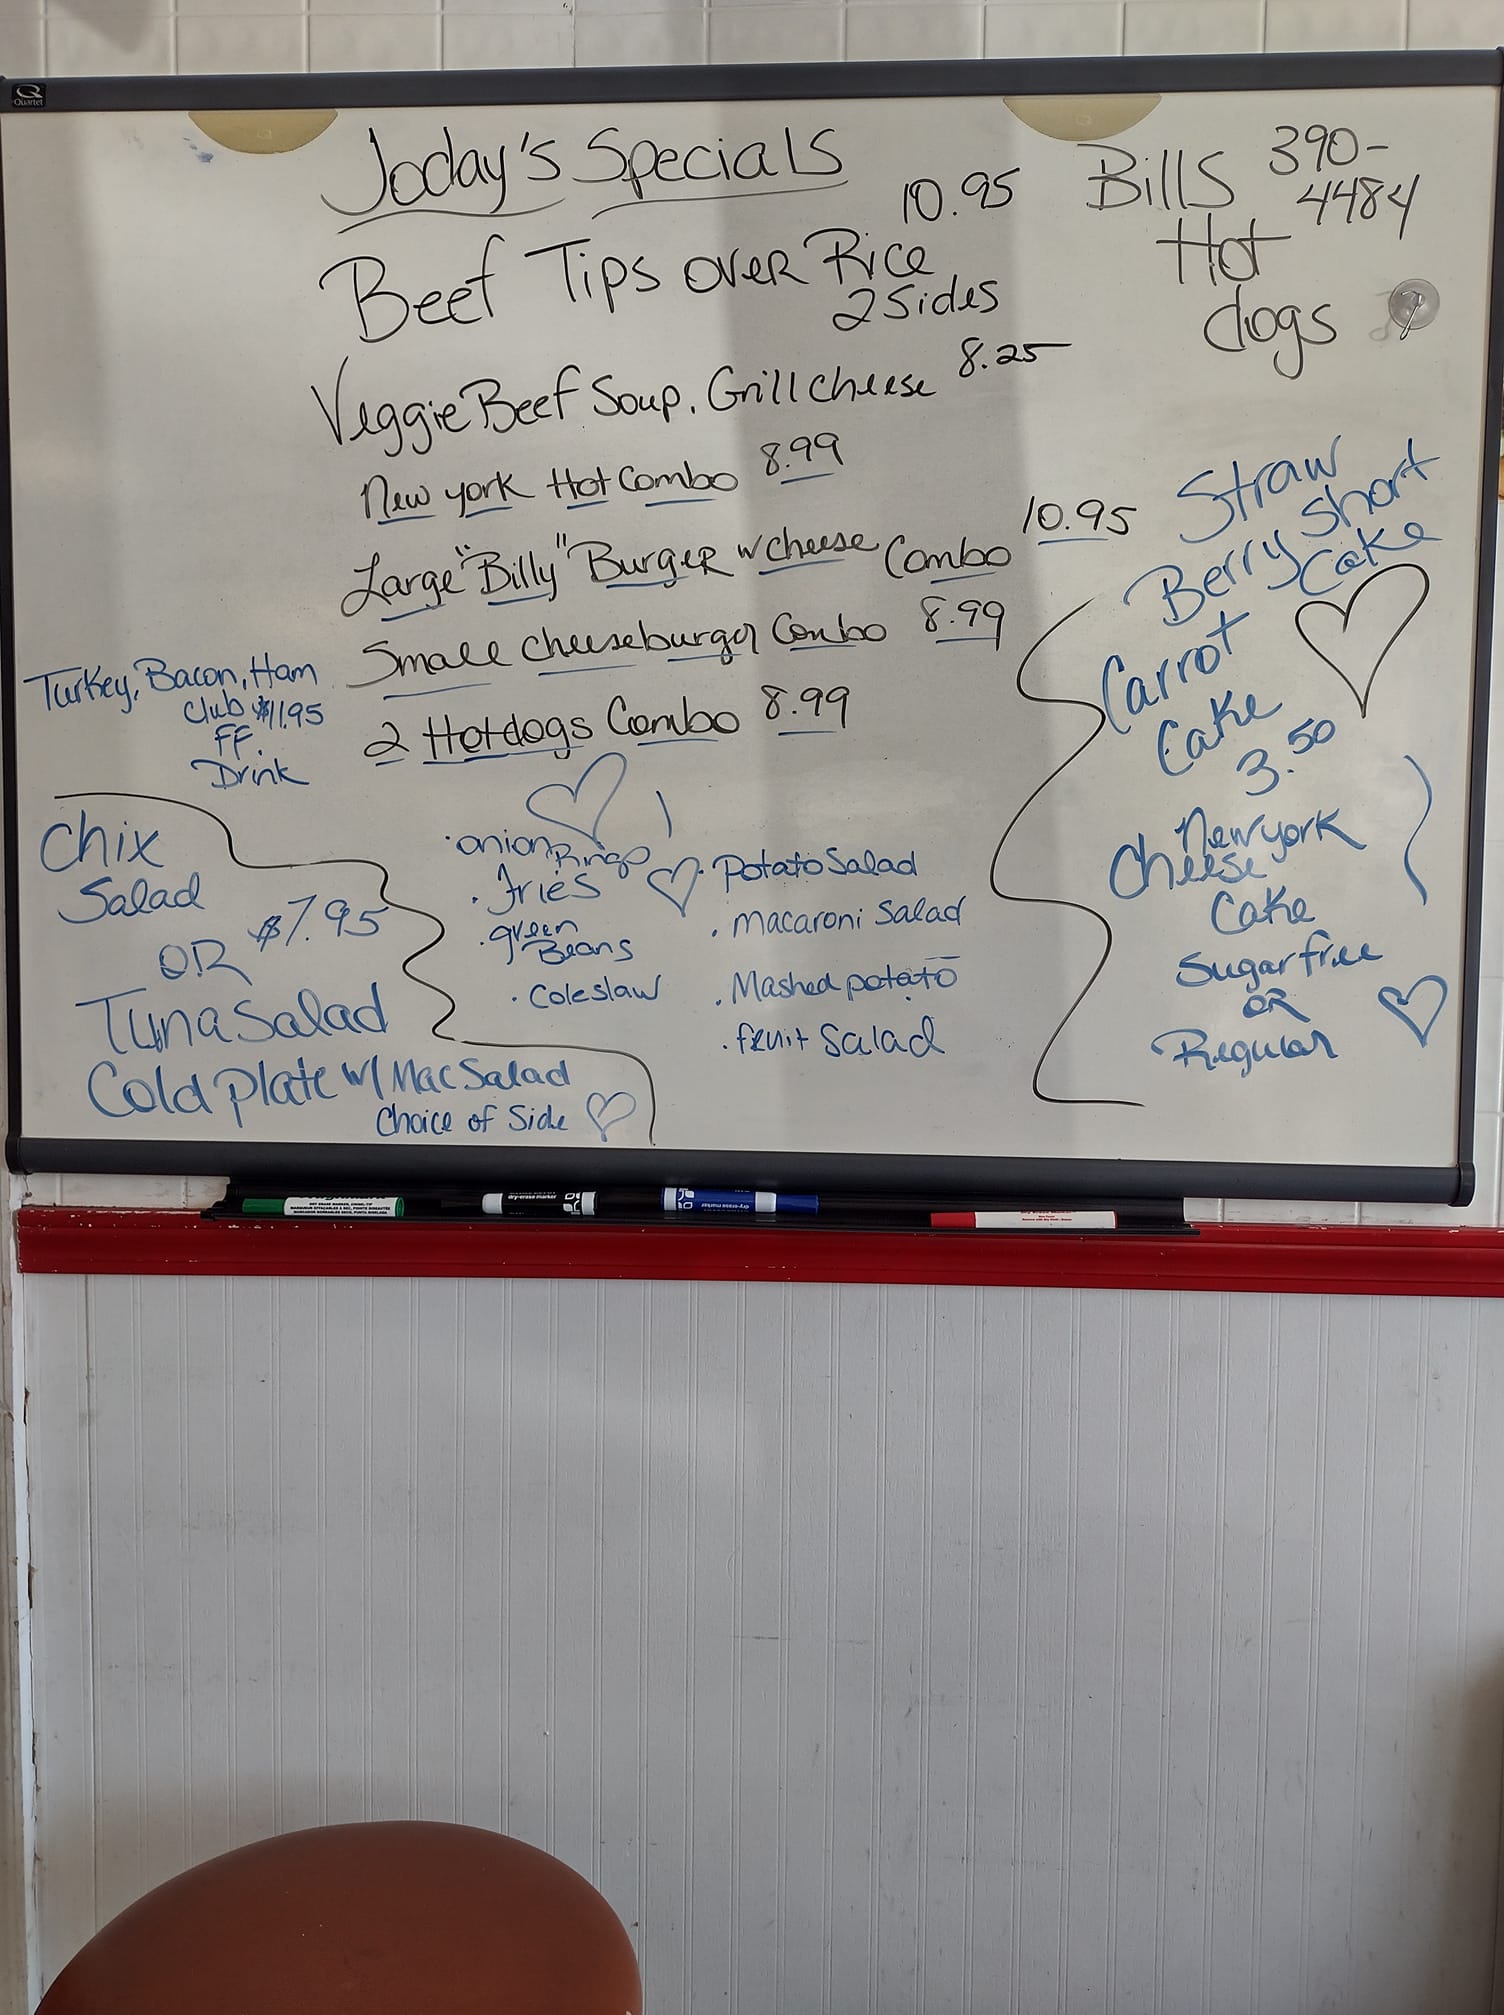 Quartet
Today's Specials
10.95
Beef Tips over Rice
2 Sides
Veggie Beef Soup, Grill cheese 8.25
New york Hot Combo 8.99
Large "Billy" Burger w cheese Combo 10.95
Small cheeseburger Combo 8.99
2 Hotdogs Combo 8.99
Bills 390-
4484
Hot
dogs
Turkey, Bacon, Ham
Club $11.95
FF.
Drink
Chix
Salad
OR $7.95
Tuna Salad
Cold Plate w/ Mac Salad
Choice of Side
· onion Rings
· fries
· green
Beans
· Coleslaw
· Potato Salad
· macaroni Salad
· Mashed potato
· fruit Salad
Straw
Berry Short
Cake
Carrot
Cake
3.50
New york
Cheese
Cake
Sugar free
OR
Regular
dry-erase marker
dry-erase marker